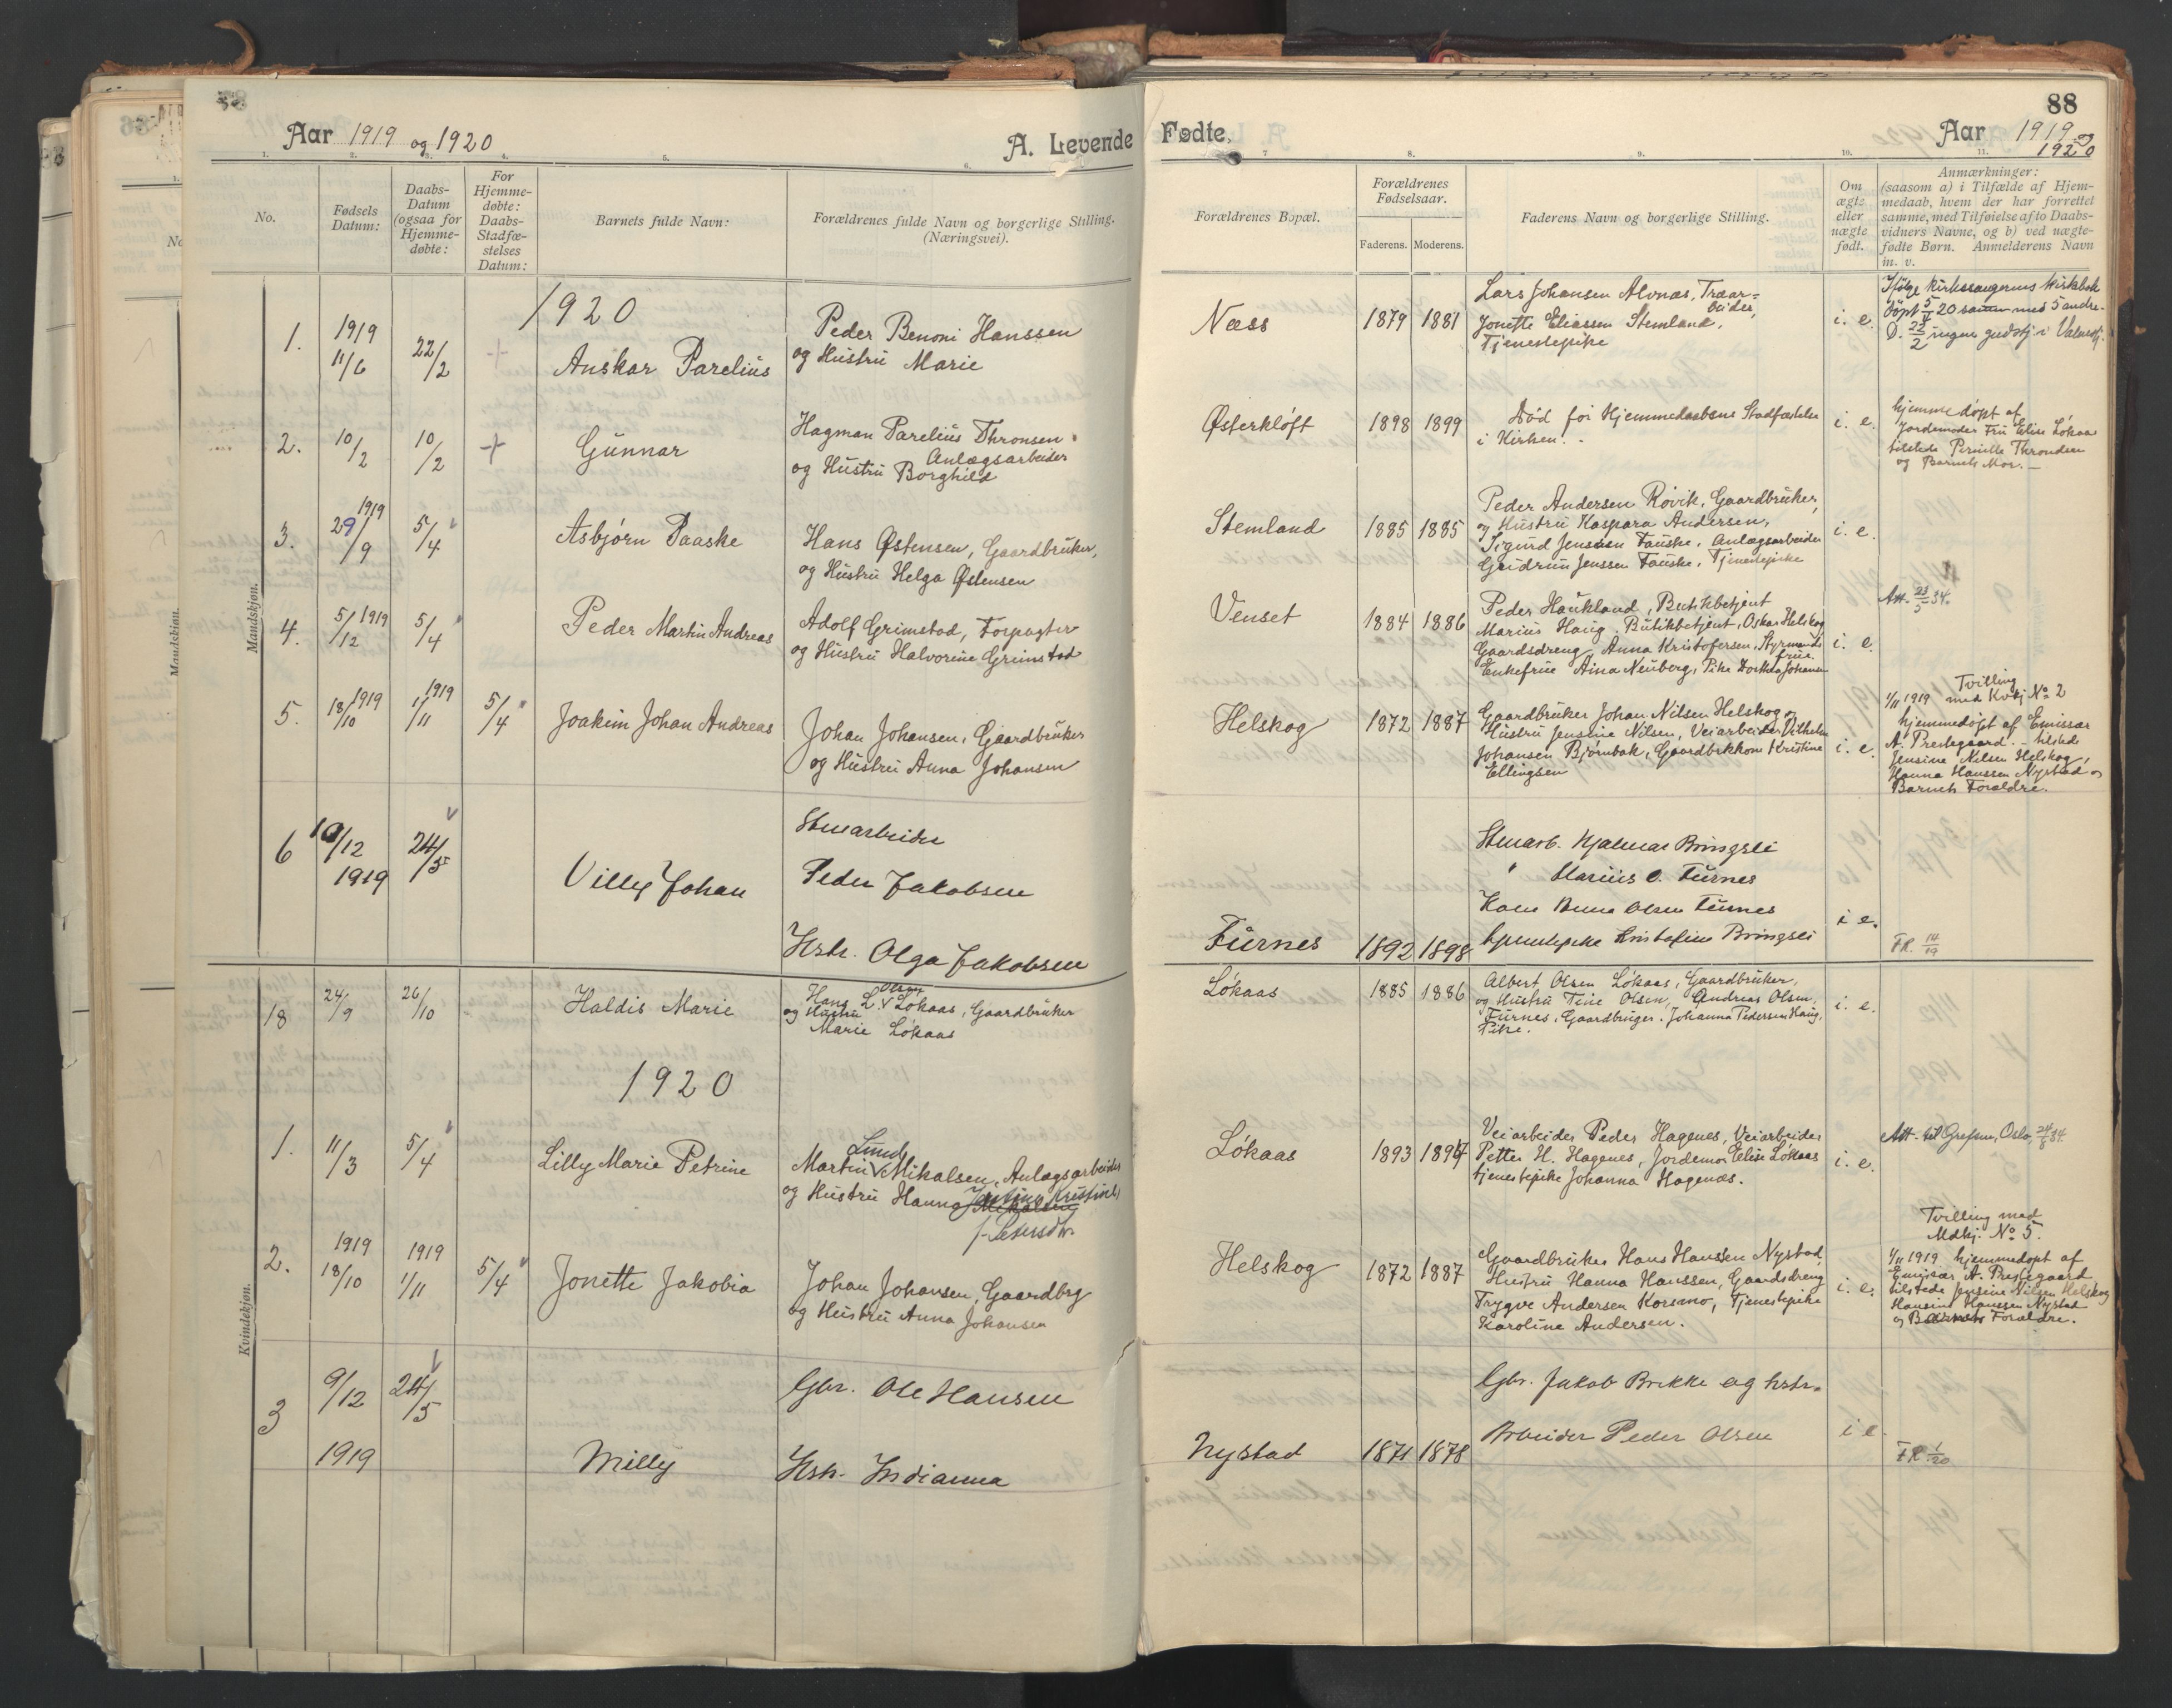 Aar 1919 og 1920
A. Levende
1. 2. 3. 4. 5. 6.
No.
Fødsels Datum:
Daabs-Datum (ogsaa for Hjemme-døbte:
For Hjemme-døbte: Daabs-Stadfæ-stelses Datum:
Barnets fulde Navn:
Forældrenes fulde Navn og borgerlige Stilling. (Næringsvei).
Mandskjøn.
1920
1. 1919 11/6 22/2 + Anskar Parelius
Peder Benoni Hanssen
og Hustru Marie
2. 10/2 10/2 + Gunnar
Hagman Parelius Thronsen
Anlægsarbeider
og Hustru Borghild
3. 1919 29/9 5/4 Asbjørn Paaske
Hans Østensen, Gaardbruker,
og Hustru Helga Østensen
4. 5/12 1919 5/4 Peder Martin Andreas
Adolf Grimstad, Forpagter
og Hustru Halvorine Grimstad
5. 18/10 1919 1/11 1919 5/4 Joakim Johan Andreas
Johan Johansen, Gaardbruker
og Hustru Anna Johansen
6 19/12 1919 24/5 Villy Johan
Stenarbeider
Peder Jakobsen
Hstr. Olga Jakobsen
Kvindekjøn.
18 24/9 26/10 Haldis Marie
Hans L. Olsen Løkaas, Gaardbruker
og Hustru
Marie Løkaas
1920
1. 11/3 5/4 Lilly Marie Petrine
Lund
Martin Mikalsen, Anlægsarbeider
og Hustru Hanna Jentine Kristine
f. Pedersdtr.
2. 1919 18/10 1919 1/11 5/4 Jonette Jakobia
Johan Johansen, Gaardbrg
og Hustru Anna Johansen
3 9/12 1919 24/5 Milly
Gbr. Ole Hansen
Hstr. Indianna
88
Fødte,
Aar 1919 og 1920
7 8. 9. 10. 11.
Forældrenes Bopæl.
Forældrenes Fødselsaar.
Faderens. Moderens.
Faderens Navn og borgerlige Stilling.
Om ægte eller uægte født.
Anmærkninger:
(saasom a) i Tilfælde af Hjem-
medaab, hvem der har forrettet
samme, med Tilføielse af to Daabs-
vidners Navne, og b) ved uægte-
fødte Børn. Anmelderens Navn
m. v.
Næss 1879 1881
Lars Johansen Alvnæs, Træar-
beider,
Jonette Eliassen Stemland,
Tjenestepike
i. e.
Ifølge kirkesangerens kirkebok
døpt 5/4 20 sammen med 5 andre.
D. 22/2 ingen gudstj. i Valnesfj.
Østerkløft 1898 1899
Død før Hjemmedaabens Stadfæstelse
i Kirken.
i. e.
hjemmedøpt af
Jordemoder Fru Elise Løkaas
tilstede Pernille Throndsen
og Barnets Mor.
Stemland 1885 1885
Peder Andersen Røvik, Gaardbruker,
og Hustru Kaspara Andersen,
Sigurd Jenssen Fauske, Anlægsarbeider
Gudrun Jenssen Fauske, Tjenestepike
i. e.
Venset 1884 1886
Peder Haukland, Butikbetjent
Marius Haug, Butikbetjent, Oskar Helskog
Gaardsdreng, Anna Kristofersen, Styrmands
frue
Enkefrue Aina Neuberg, Pike Dorthea Johansen
i. e.
Att. 23/5 34.
Helskog 1872 1887
Gaardbruker Johan Nilsen Helskog og
Hustru Jensine Nilsen, Veiarbeider Vilhelm
Johansen Bjørnbak, Gaardbrkkone Kristine
Ellingsen
i. e
Tvilling
1/11 1919 med Kvkj No 2
hjemmedøpt af Emissær
A. Prestegaard. - tilstede
Jensine Nilsen Helskog,
Hanna Hanssen Nystad og
Barnets Forældre.
Furnes 1892 1898
Stenarb. Hjalmar Bringsli
" Marius O. Furnes
Kone Anna Olsen Furnes
tjenestepike Kristofine Bringsli
i e.
FR. 14/19
Løkaas 1885 1886
Albert Olsen Løkaas, Gaardbruker,
og Hustru Tine Olsen, Andreas Olsen
Furnes, Gaardbruger. Johanna Pedersen Haug,
Pike.
i. e.
Løkaas 1893 1897
Veiarbeider Peder Hagenes, Veiarbeider
Petter H. Hagenes, Jordemor Elise Løkaas
tjenestepike Johanna Hagenæs.
i. e.
Att. til Grefsen, Oslo, 24/8 34.
Helskog 1872 1887
Gaardbruker Hans Hanssen Nystad,
Hustru Hanna Hanssen, Gaardsdreng
Trygve Andersen Korsmo, Tjenestepike
Karoline Andersen.
i. e.
Tvilling med
Mdkj. No 5.
1/11 1919 hjemmedøpt af
Emissær A. Prestegaard
tilstede Jensine Nilsen Helskog
Hansine Hanssen Nystad
og Barnets Forældre.
Nystad 1871 1878
Gbr. Jakob Brekke og hstr.
Arbeider Peder Olsen
i e
FR 1/20